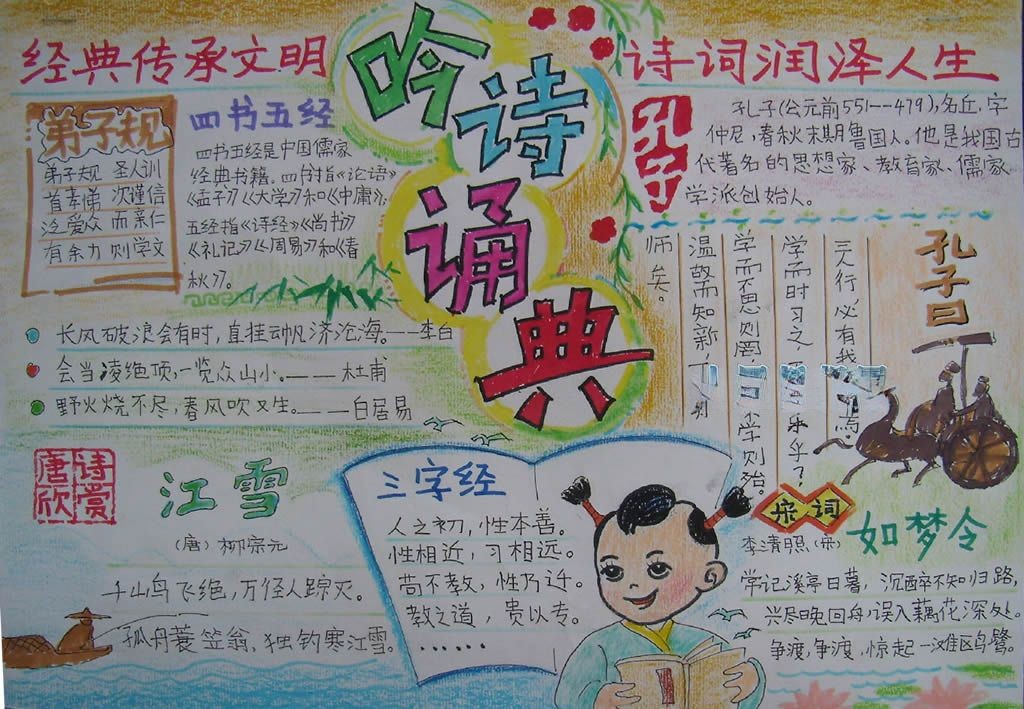 经典传承文明
吟诗诵典
诗词润泽人生
弟子规
弟子规 圣人训
首孝悌 次谨信
泛爱众 而亲仁
有余力 则学文
四书五经
四书五经是中国儒家
经典书籍。四书指《论语》
《孟子》《大学》和《中庸》;
五经指《诗经》《尚书》
《礼记》《周易》和《春
秋》。
孔子
孔子(公元前551—479),名丘,字
仲尼,春秋末期鲁国人。他是我国古
代著名的思想家、教育家、儒家
学派创始人。
孔子曰
三人行,必有我焉.
学而时习之,乐乎?
学而不思则罔,学则殆。
温而知新,
师矣。
长风破浪会有时,直挂云帆济沧海。——李白
会当凌绝顶,一览众山小。——杜甫
野火烧不尽,春风吹又生。——白居易
唐诗
欣赏
江雪
(唐)柳宗元
千山鸟飞绝,万径人踪灭。
孤舟蓑笠翁,独钓寒江雪。
三字经
人之初,性本善。
性相近,习相远。
苟不教,性乃迁。
教之道,贵以专。
……
宋词
如梦令
李清照(宋)
常记溪亭日暮,沉醉不知归路,
兴尽晚回舟,误入藕花深处。
争渡,争渡,惊起一滩鸥鹭。